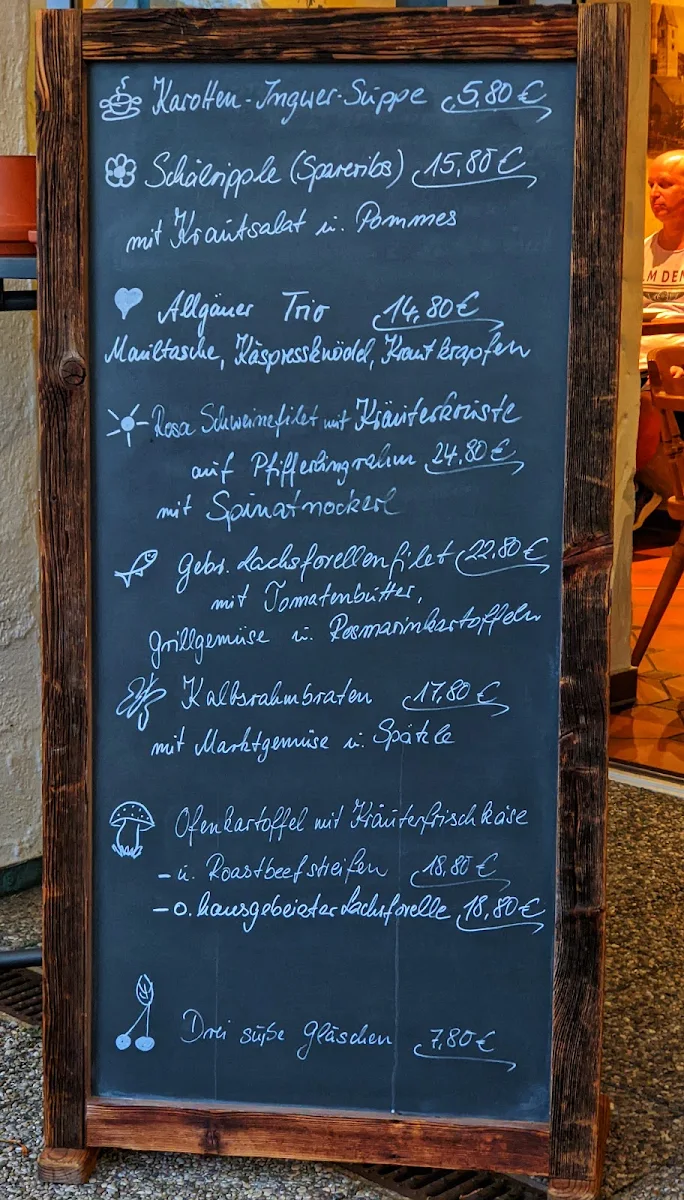 Karotten-Ingwer-Suppe 5,80 €
Schälripple (Spareribs) 15,80 €
mit Krautsalat u. Pommes
Allgäuer Trio 14,80 €
Maultasche, Käspressknödel, Krautkrapfen
Rosa Schweinefilet mit Kräuterkruste
auf Pfifferlingrahm 24,80 €
mit Spinatnockerl
Gebr. Lachsforellenfilet 22,80 €
mit Tomatenbutter,
Grillgemüse u. Rosmarinkartoffeln
Kalbsrahmbraten 17,80 €
mit Marktgemüse u. Spätzle
Ofenkartoffel mit Kräuterfrischkäse
- u. Roastbeefstreifen 18,80 €
- o. hausgebeizter Lachsforelle 18,80 €
Drei süße Gläschen 7,80 €
M DEN